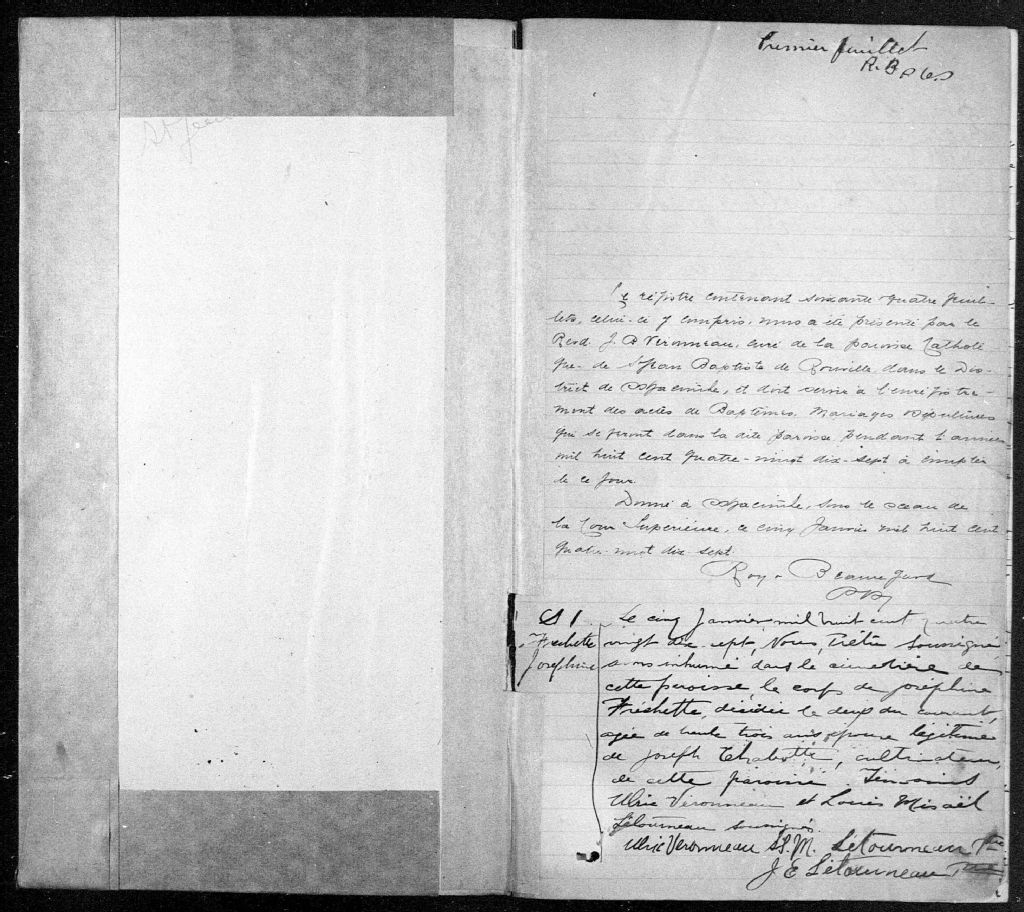 St Jean
Premier feuillet
R. B p cs
Ce régistre contenant soixante quatre feuil-
lets, celui-ci y compris, nous a été présenté par le
Revd. J. B Véronneau, curé de la paroisse Catholi
que de St Jean Baptiste de Rouville, dans le Dis-
trict de St Hyacinthe, et doit servir à l'enrégistre-
ment des actes de Baptêmes, Mariages & Sépultures
qui se feront dans la dite paroisse, pendant l'année
mil huit cent quatre-vingt dix-sept à compter
de ce jour.
Donné à St Hyacinthe, sous le sceau de
la Cour Supérieure, ce cinq Janvier mil huit cent
quatre-vingt dix sept.
Roy & Beauregard
S 1
Frechette
Josephine
Le cinq Janvier mil huit cent quatre
vingt dix sept, Nous, Prêtre soussigné
avons inhumé dans le cimetière de
cette paroisse, le corps de Joséphine
Fréchette, décédée le deux du courant,
agée de trente trois ans, épouse légitime
de Joseph Chabotte, cultivateur,
de cette paroisse Témoins
Ulric Véronneau et Louis Misaël
Létourneau soussignés.
Ulric Véronneau Ls. M. Létourneau
J E Létourneau Ptre